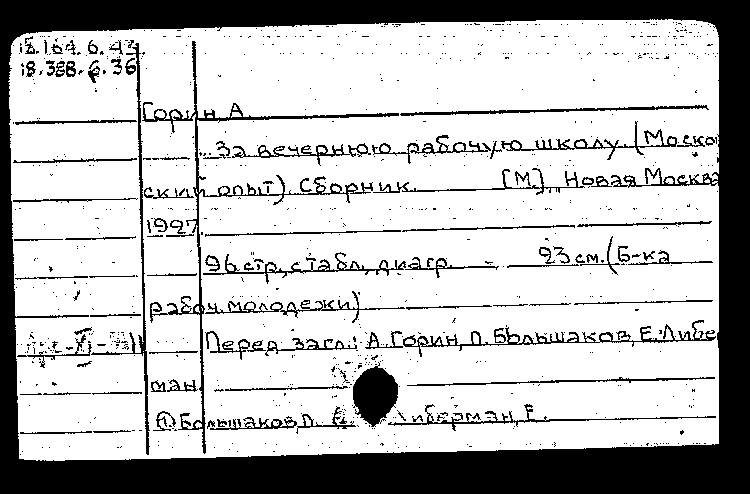 18.164.6.43.
18.388.6.36
Горин А.
За вечернюю рабочую школу. (Моско
ский опыт). Сборник. [М.], Новая Москва
1927.
96 стр., с табл., диагр. - 23 см. (Б-ка
рабоч. молодежи)
Перед загл.: А. Горин, П. Большаков, Е. Либе
ман.
① Большаков, П. Либерман, Е.